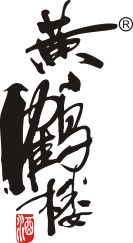 黄鹤楼®
酒